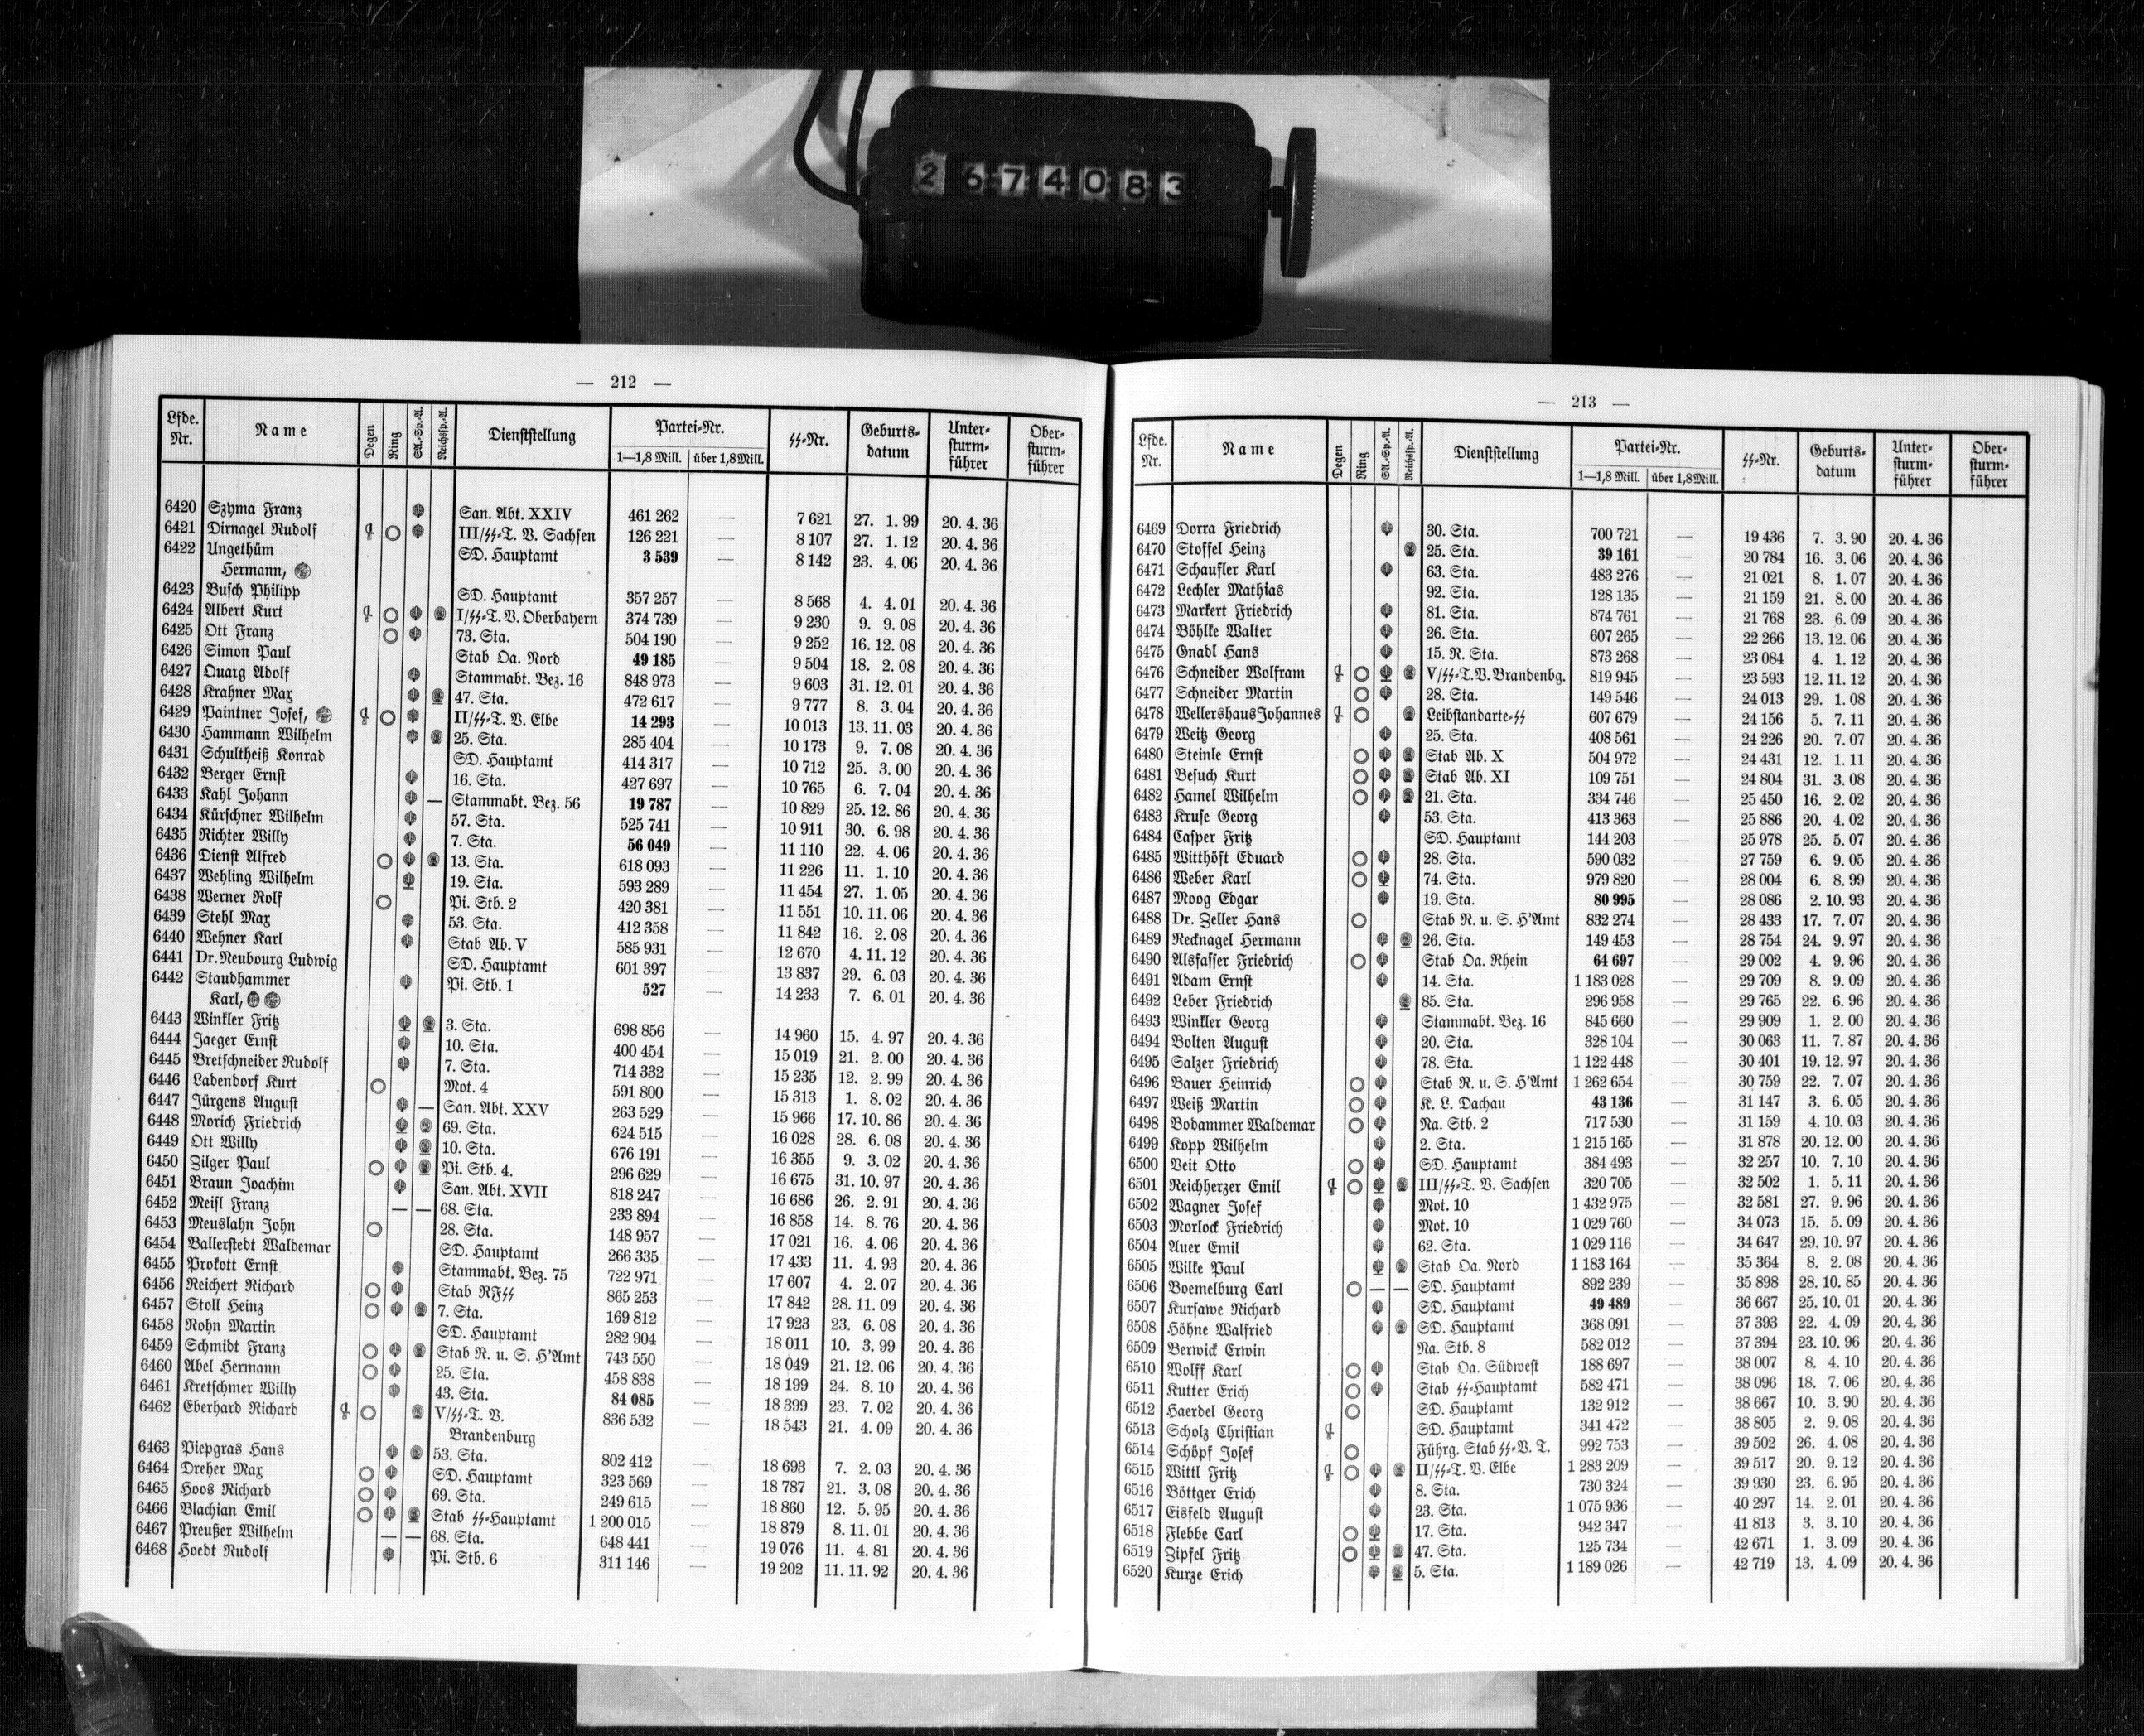 2674083
— 212 —
Lfde. Nr. Name Degen Ring SA.-Sp.-A. Reichssp.-A. Dienststellung Partei-Nr. 1—1,8 Mill. über 1,8 Mill. ᛋᛋ-Nr. Geburts-datum Unter-sturm-führer Ober-sturm-führer
6420 Szyma Franz San. Abt. XXIV 461 262 — 7 621 27. 1. 99 20. 4. 36
6421 Dirnagel Rudolf III/ᛋᛋ-T. V. Sachsen 126 221 — 8 107 27. 1. 12 20. 4. 36
6422 Ungethüm SD. Hauptamt 3 539 — 8 142 23. 4. 06 20. 4. 36
Hermann,
6423 Busch Philipp SD. Hauptamt 357 257 — 8 568 4. 4. 01 20. 4. 36
6424 Albert Kurt I/ᛋᛋ-T. V. Oberbayern 374 739 — 9 230 9. 9. 08 20. 4. 36
6425 Ott Franz 73. Sta. 504 190 — 9 252 16. 12. 08 20. 4. 36
6426 Simon Paul Stab Oa. Nord 49 185 — 9 504 18. 2. 08 20. 4. 36
6427 Quarg Adolf Stammabt. Bez. 16 848 973 — 9 603 31. 12. 01 20. 4. 36
6428 Krahner Max 47. Sta. 472 617 — 9 777 8. 3. 04 20. 4. 36
6429 Paintner Josef, II/ᛋᛋ-T. V. Elbe 14 293 — 10 013 13. 11. 03 20. 4. 36
6430 Hammann Wilhelm 25. Sta. 285 404 — 10 173 9. 7. 08 20. 4. 36
6431 Schultheiß Konrad SD. Hauptamt 414 317 — 10 712 25. 3. 00 20. 4. 36
6432 Berger Ernst 16. Sta. 427 697 — 10 765 6. 7. 04 20. 4. 36
6433 Kahl Johann — Stammabt. Bez. 56 19 787 — 10 829 25. 12. 86 20. 4. 36
6434 Kürschner Wilhelm 57. Sta. 525 741 — 10 911 30. 6. 98 20. 4. 36
6435 Richter Willy 7. Sta. 56 049 — 11 110 22. 4. 06 20. 4. 36
6436 Dienst Alfred 13. Sta. 618 093 — 11 226 11. 1. 10 20. 4. 36
6437 Wehling Wilhelm 19. Sta. 593 289 — 11 454 27. 1. 05 20. 4. 36
6438 Werner Rolf Pi. Stb. 2 420 381 — 11 551 10. 11. 06 20. 4. 36
6439 Stehl Max 53. Sta. 412 358 — 11 842 16. 2. 08 20. 4. 36
6440 Wehner Karl Stab Ab. V 585 931 — 12 670 4. 11. 12 20. 4. 36
6441 Dr. Neubourg Ludwig SD. Hauptamt 601 397 — 13 837 29. 6. 03 20. 4. 36
6442 Staudhammer Pi. Stb. 1 527 — 14 233 7. 6. 01 20. 4. 36
Karl,
6443 Winkler Fritz 3. Sta. 698 856 — 14 960 15. 4. 97 20. 4. 36
6444 Jaeger Ernst 10. Sta. 400 454 — 15 019 21. 2. 00 20. 4. 36
6445 Bretschneider Rudolf 7. Sta. 714 332 — 15 235 12. 2. 99 20. 4. 36
6446 Ladendorf Kurt Mot. 4 591 800 — 15 313 1. 8. 02 20. 4. 36
6447 Jürgens August — San. Abt. XXV 263 529 — 15 966 17. 10. 86 20. 4. 36
6448 Morich Friedrich 69. Sta. 624 515 — 16 028 28. 6. 08 20. 4. 36
6449 Ott Willy 10. Sta. 676 191 — 16 355 9. 3. 02 20. 4. 36
6450 Zilger Paul Pi. Stb. 4. 296 629 — 16 675 31. 10. 97 20. 4. 36
6451 Braun Joachim San. Abt. XVII 818 247 — 16 686 26. 2. 91 20. 4. 36
6452 Meisl Franz — — 68. Sta. 233 894 — 16 858 14. 8. 76 20. 4. 36
6453 Meuslahn John 28. Sta. 148 957 — 17 021 16. 4. 06 20. 4. 36
6454 Ballerstedt Waldemar SD. Hauptamt 266 335 — 17 433 11. 4. 93 20. 4. 36
6455 Prokott Ernst Stammabt. Bez. 75 722 971 — 17 607 4. 2. 07 20. 4. 36
6456 Reichert Richard Stab RFᛋᛋ 865 253 — 17 842 28. 11. 09 20. 4. 36
6457 Stoll Heinz 7. Sta. 169 812 — 17 923 23. 6. 08 20. 4. 36
6458 Rohn Martin SD. Hauptamt 282 904 — 18 011 10. 3. 99 20. 4. 36
6459 Schmidt Franz Stab R. u. S. H'Amt 743 550 — 18 049 21. 12. 06 20. 4. 36
6460 Abel Hermann 25. Sta. 458 838 — 18 199 24. 8. 10 20. 4. 36
6461 Kretschmer Willy 43. Sta. 84 085 — 18 399 23. 7. 02 20. 4. 36
6462 Eberhard Richard V/ᛋᛋ-T. V. 836 532 — 18 543 21. 4. 09 20. 4. 36
Brandenburg
6463 Piepgras Hans 53. Sta. 802 412 — 18 693 7. 2. 03 20. 4. 36
6464 Dreher Max SD. Hauptamt 323 569 — 18 787 21. 3. 08 20. 4. 36
6465 Hoos Richard 69. Sta. 249 615 — 18 860 12. 5. 95 20. 4. 36
6466 Blachian Emil Stab ᛋᛋ-Hauptamt 1 200 015 — 18 879 8. 11. 01 20. 4. 36
6467 Preußer Wilhelm — — 68. Sta. 648 441 — 19 076 11. 4. 81 20. 4. 36
6468 Hoedt Rudolf Pi. Stb. 6 311 146 — 19 202 11. 11. 92 20. 4. 36
— 213 —
Lfde. Nr. Name Degen Ring SA.-Sp.-A. Reichssp.-A. Dienststellung Partei-Nr. 1—1,8 Mill. über 1,8 Mill. ᛋᛋ-Nr. Geburts-datum Unter-sturm-führer Ober-sturm-führer
6469 Dorra Friedrich 30. Sta. 700 721 — 19 436 7. 3. 90 20. 4. 36
6470 Stoffel Heinz 25. Sta. 39 161 — 20 784 16. 3. 06 20. 4. 36
6471 Schaufler Karl 63. Sta. 483 276 — 21 021 8. 1. 07 20. 4. 36
6472 Lechler Mathias 92. Sta. 128 135 — 21 159 21. 8. 00 20. 4. 36
6473 Markert Friedrich 81. Sta. 874 761 — 21 768 23. 6. 09 20. 4. 36
6474 Böhlke Walter 26. Sta. 607 265 — 22 266 13. 12. 06 20. 4. 36
6475 Gnadl Hans 15. R. Sta. 873 268 — 23 084 4. 1. 12 20. 4. 36
6476 Schneider Wolfram V/ᛋᛋ-T. V. Brandenbg. 819 945 — 23 593 12. 11. 12 20. 4. 36
6477 Schneider Martin 28. Sta. 149 546 — 24 013 29. 1. 08 20. 4. 36
6478 Wellershaus Johannes Leibstandarte-ᛋᛋ 607 679 — 24 156 5. 7. 11 20. 4. 36
6479 Weitz Georg 25. Sta. 408 561 — 24 226 20. 7. 07 20. 4. 36
6480 Steinle Ernst Stab Ab. X 504 972 — 24 431 12. 1. 11 20. 4. 36
6481 Besuch Kurt Stab Ab. XI 109 751 — 24 804 31. 3. 08 20. 4. 36
6482 Hamel Wilhelm 21. Sta. 334 746 — 25 450 16. 2. 02 20. 4. 36
6483 Kruse Georg 53. Sta. 413 363 — 25 886 20. 4. 02 20. 4. 36
6484 Casper Fritz SD. Hauptamt 144 203 — 25 978 25. 5. 07 20. 4. 36
6485 Witthöft Eduard 28. Sta. 590 032 — 27 759 6. 9. 05 20. 4. 36
6486 Weber Karl 74. Sta. 979 820 — 28 004 6. 8. 99 20. 4. 36
6487 Moog Edgar 19. Sta. 80 995 — 28 086 2. 10. 93 20. 4. 36
6488 Dr. Zeller Hans Stab R. u. S. H'Amt 832 274 — 28 433 17. 7. 07 20. 4. 36
6489 Recknagel Hermann 26. Sta. 149 453 — 28 754 24. 9. 97 20. 4. 36
6490 Alsfasser Friedrich Stab Oa. Rhein 64 697 — 29 002 4. 9. 96 20. 4. 36
6491 Adam Ernst 14. Sta. 1 183 028 — 29 709 8. 9. 09 20. 4. 36
6492 Leber Friedrich 85. Sta. 296 958 — 29 765 22. 6. 96 20. 4. 36
6493 Winkler Georg Stammabt. Bez. 16 845 660 — 29 909 1. 2. 00 20. 4. 36
6494 Bolten August 20. Sta. 328 104 — 30 063 11. 7. 87 20. 4. 36
6495 Salzer Friedrich 78. Sta. 1 122 448 — 30 401 19. 12. 97 20. 4. 36
6496 Bauer Heinrich Stab R. u. S. H'Amt 1 262 654 — 30 759 22. 7. 07 20. 4. 36
6497 Weiß Martin K. L. Dachau 43 136 — 31 147 3. 6. 05 20. 4. 36
6498 Bodammer Waldemar Na. Stb. 2 717 530 — 31 159 4. 10. 03 20. 4. 36
6499 Kopp Wilhelm 2. Sta. 1 215 165 — 31 878 20. 12. 00 20. 4. 36
6500 Veit Otto SD. Hauptamt 384 493 — 32 257 10. 7. 10 20. 4. 36
6501 Reichherzer Emil III/ᛋᛋ-T. V. Sachsen 320 705 — 32 502 1. 5. 11 20. 4. 36
6502 Wagner Josef Mot. 10 1 432 975 — 32 581 27. 9. 96 20. 4. 36
6503 Morlock Friedrich Mot. 10 1 029 760 — 34 073 15. 5. 09 20. 4. 36
6504 Auer Emil 62. Sta. 1 029 116 — 34 647 29. 10. 97 20. 4. 36
6505 Wilke Paul Stab Oa. Nord 1 183 164 — 35 364 8. 2. 08 20. 4. 36
6506 Boemelburg Carl — — SD. Hauptamt 892 239 — 35 898 28. 10. 85 20. 4. 36
6507 Kursawe Richard SD. Hauptamt 49 489 — 36 667 25. 10. 01 20. 4. 36
6508 Höhne Walfried SD. Hauptamt 368 091 — 37 393 22. 4. 09 20. 4. 36
6509 Berwick Erwin Na. Stb. 8 582 012 — 37 394 23. 10. 96 20. 4. 36
6510 Wolff Karl Stab Oa. Südwest 188 697 — 38 007 8. 4. 10 20. 4. 36
6511 Kutter Erich Stab ᛋᛋ-Hauptamt 582 471 — 38 096 18. 7. 06 20. 4. 36
6512 Haerdel Georg SD. Hauptamt 132 912 — 38 667 10. 3. 90 20. 4. 36
6513 Scholz Christian SD. Hauptamt 341 472 — 38 805 2. 9. 08 20. 4. 36
6514 Schöpf Josef Führg. Stab ᛋᛋ-V. T. 992 753 — 39 502 26. 4. 08 20. 4. 36
6515 Wittl Fritz II/ᛋᛋ-T. V. Elbe 1 283 209 — 39 517 20. 9. 12 20. 4. 36
6516 Böttger Erich 8. Sta. 730 324 — 39 930 23. 6. 95 20. 4. 36
6517 Eisfeld August 23. Sta. 1 075 936 — 40 297 14. 2. 01 20. 4. 36
6518 Flebbe Carl 17. Sta. 942 347 — 41 813 3. 3. 10 20. 4. 36
6519 Zipfel Fritz 47. Sta. 125 734 — 42 671 1. 3. 09 20. 4. 36
6520 Kurze Erich 5. Sta. 1 189 026 — 42 719 13. 4. 09 20. 4. 36